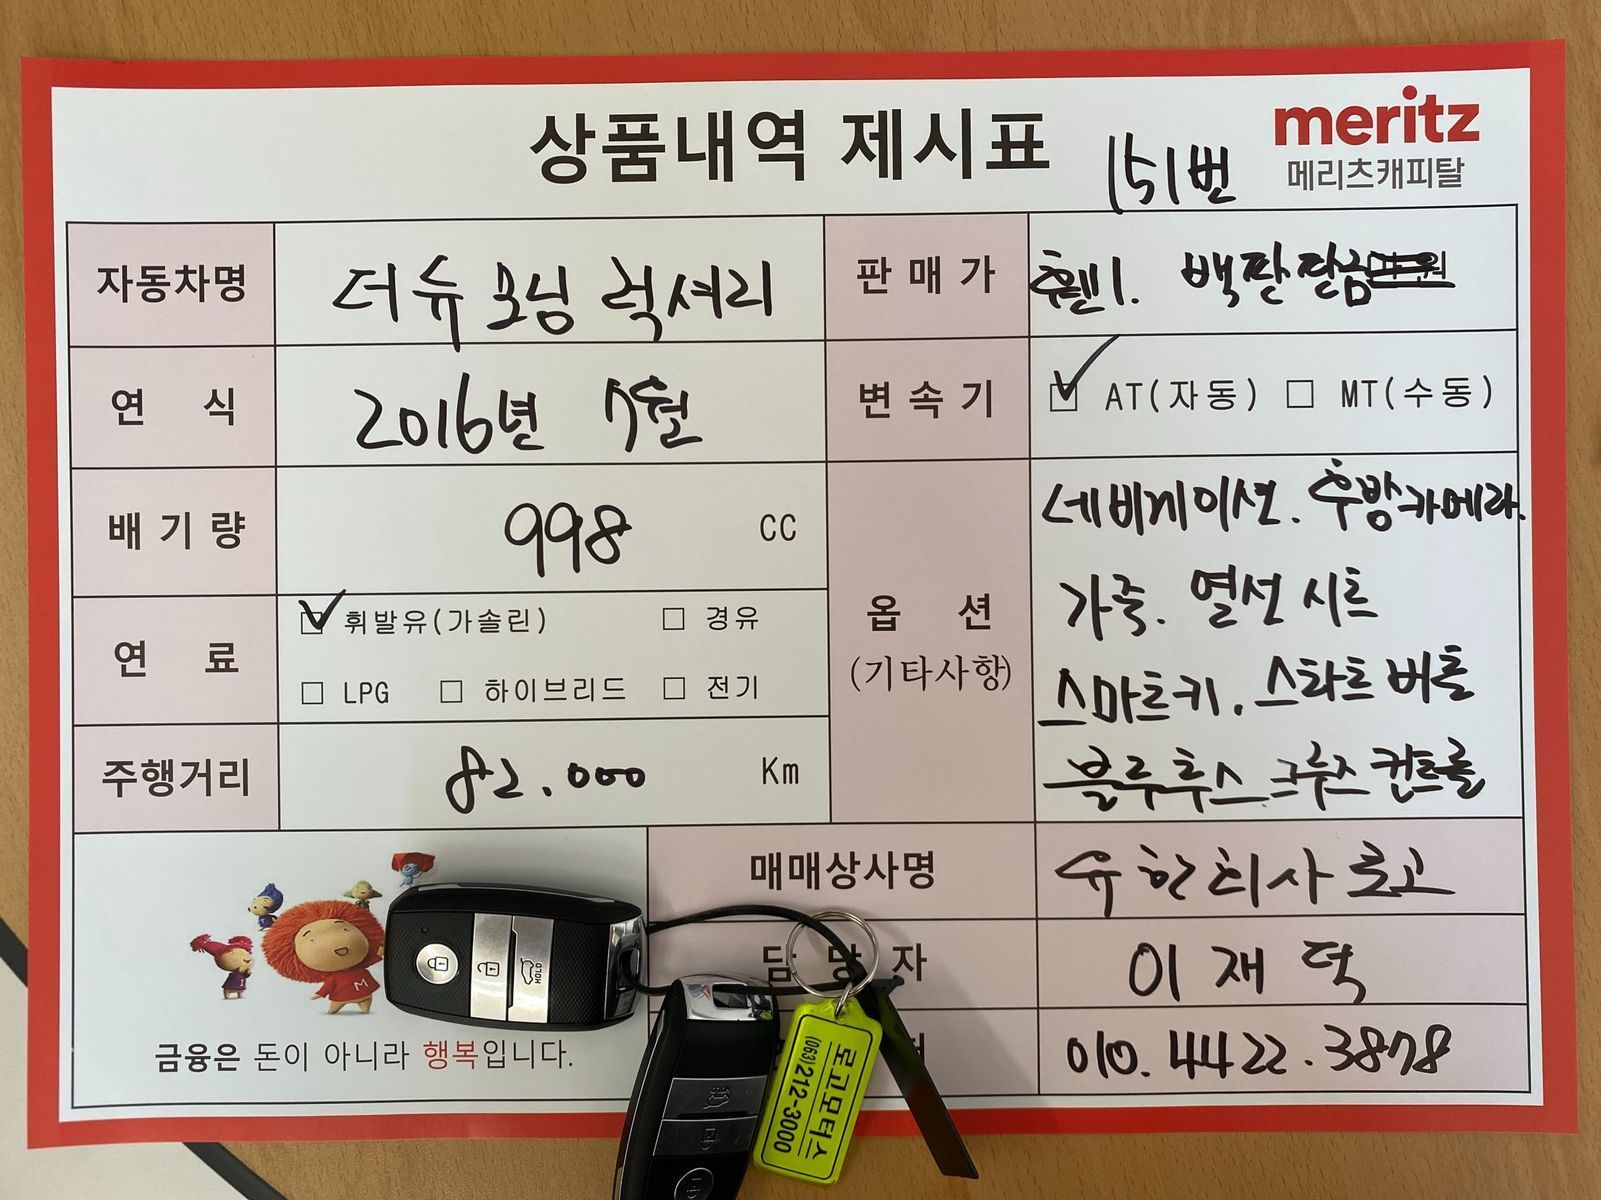 상품내역 제시표
151번
meritz
메리츠캐피탈
자동차명 더뉴 모닝 럭셔리
판매가 휀1. 백판 판금
연식 2016년 7월
변속기 ☑ AT(자동) ☐ MT(수동)
배기량 998 CC
옵션 (기타사항)
네비게이션. 후방카메라.
가죽. 열선시트
스마트키. 스타트버튼
블루투스. 크루즈컨트롤
연료 ☑ 휘발유(가솔린) ☐ 경유
☐ LPG ☐ 하이브리드 ☐ 전기
주행거리 82.000 Km
매매상사명 유한회사 로고
담당자 이재덕
010.4422.3878
금융은 돈이 아니라 행복입니다.
M
HOLD
로고모터스
(063)212-3000